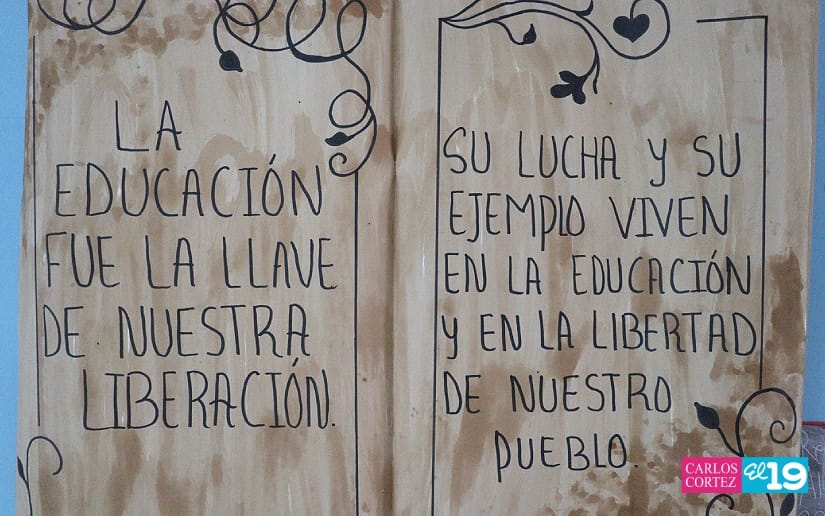 LA
EDUCACIÓN
FUE LA LLAVE
DE NUESTRA
LIBERACIÓN.
SU LUCHA Y SU
EJEMPLO VIVEN
EN LA EDUCACIÓN
Y EN LA LIBERTAD
DE NUESTRO
PUEBLO.
CARLOS
CORTEZ
El 19